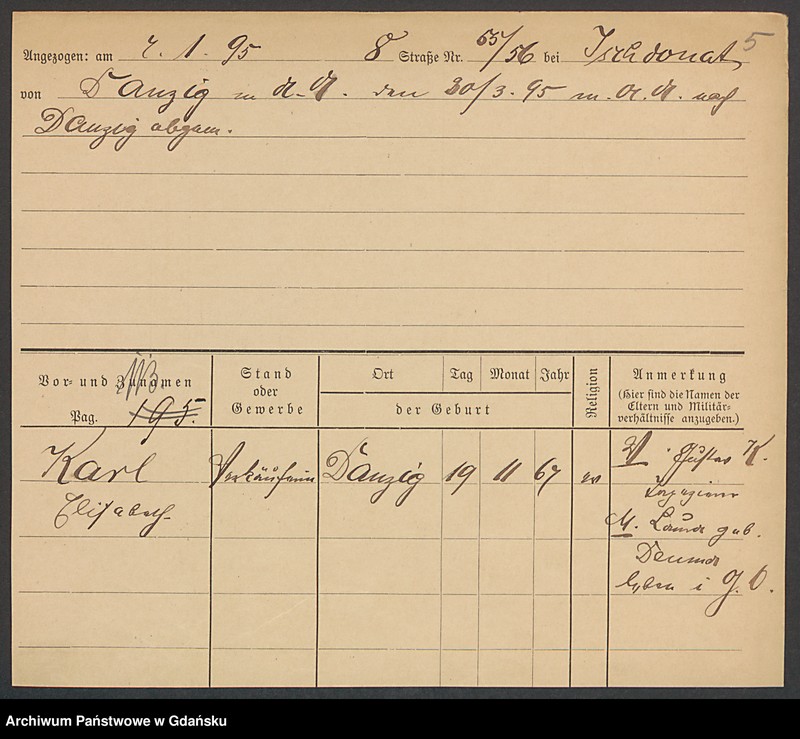 5
Angezogen: am 7. 1. 95 8 Straße Nr. 55/56 bei
von Danzig m A. A. den 30/3. 95 m. A. A. nach
Danzig abgem.
Vor- und Zunamen
Pag. 195.
Stand
oder
Gewerbe
Ort Tag Monat Jahr
der Geburt
Religion
Anmerkung
(Hier sind die Namen der
Eltern und Militär-
verhältnisse anzugeben.)
Karl Verkäuferin Danzig 19 11 67 ev
Elisabeth
V. Gustav K.
M. geb.
leben i
Archiwum Państwowe w Gdańsku